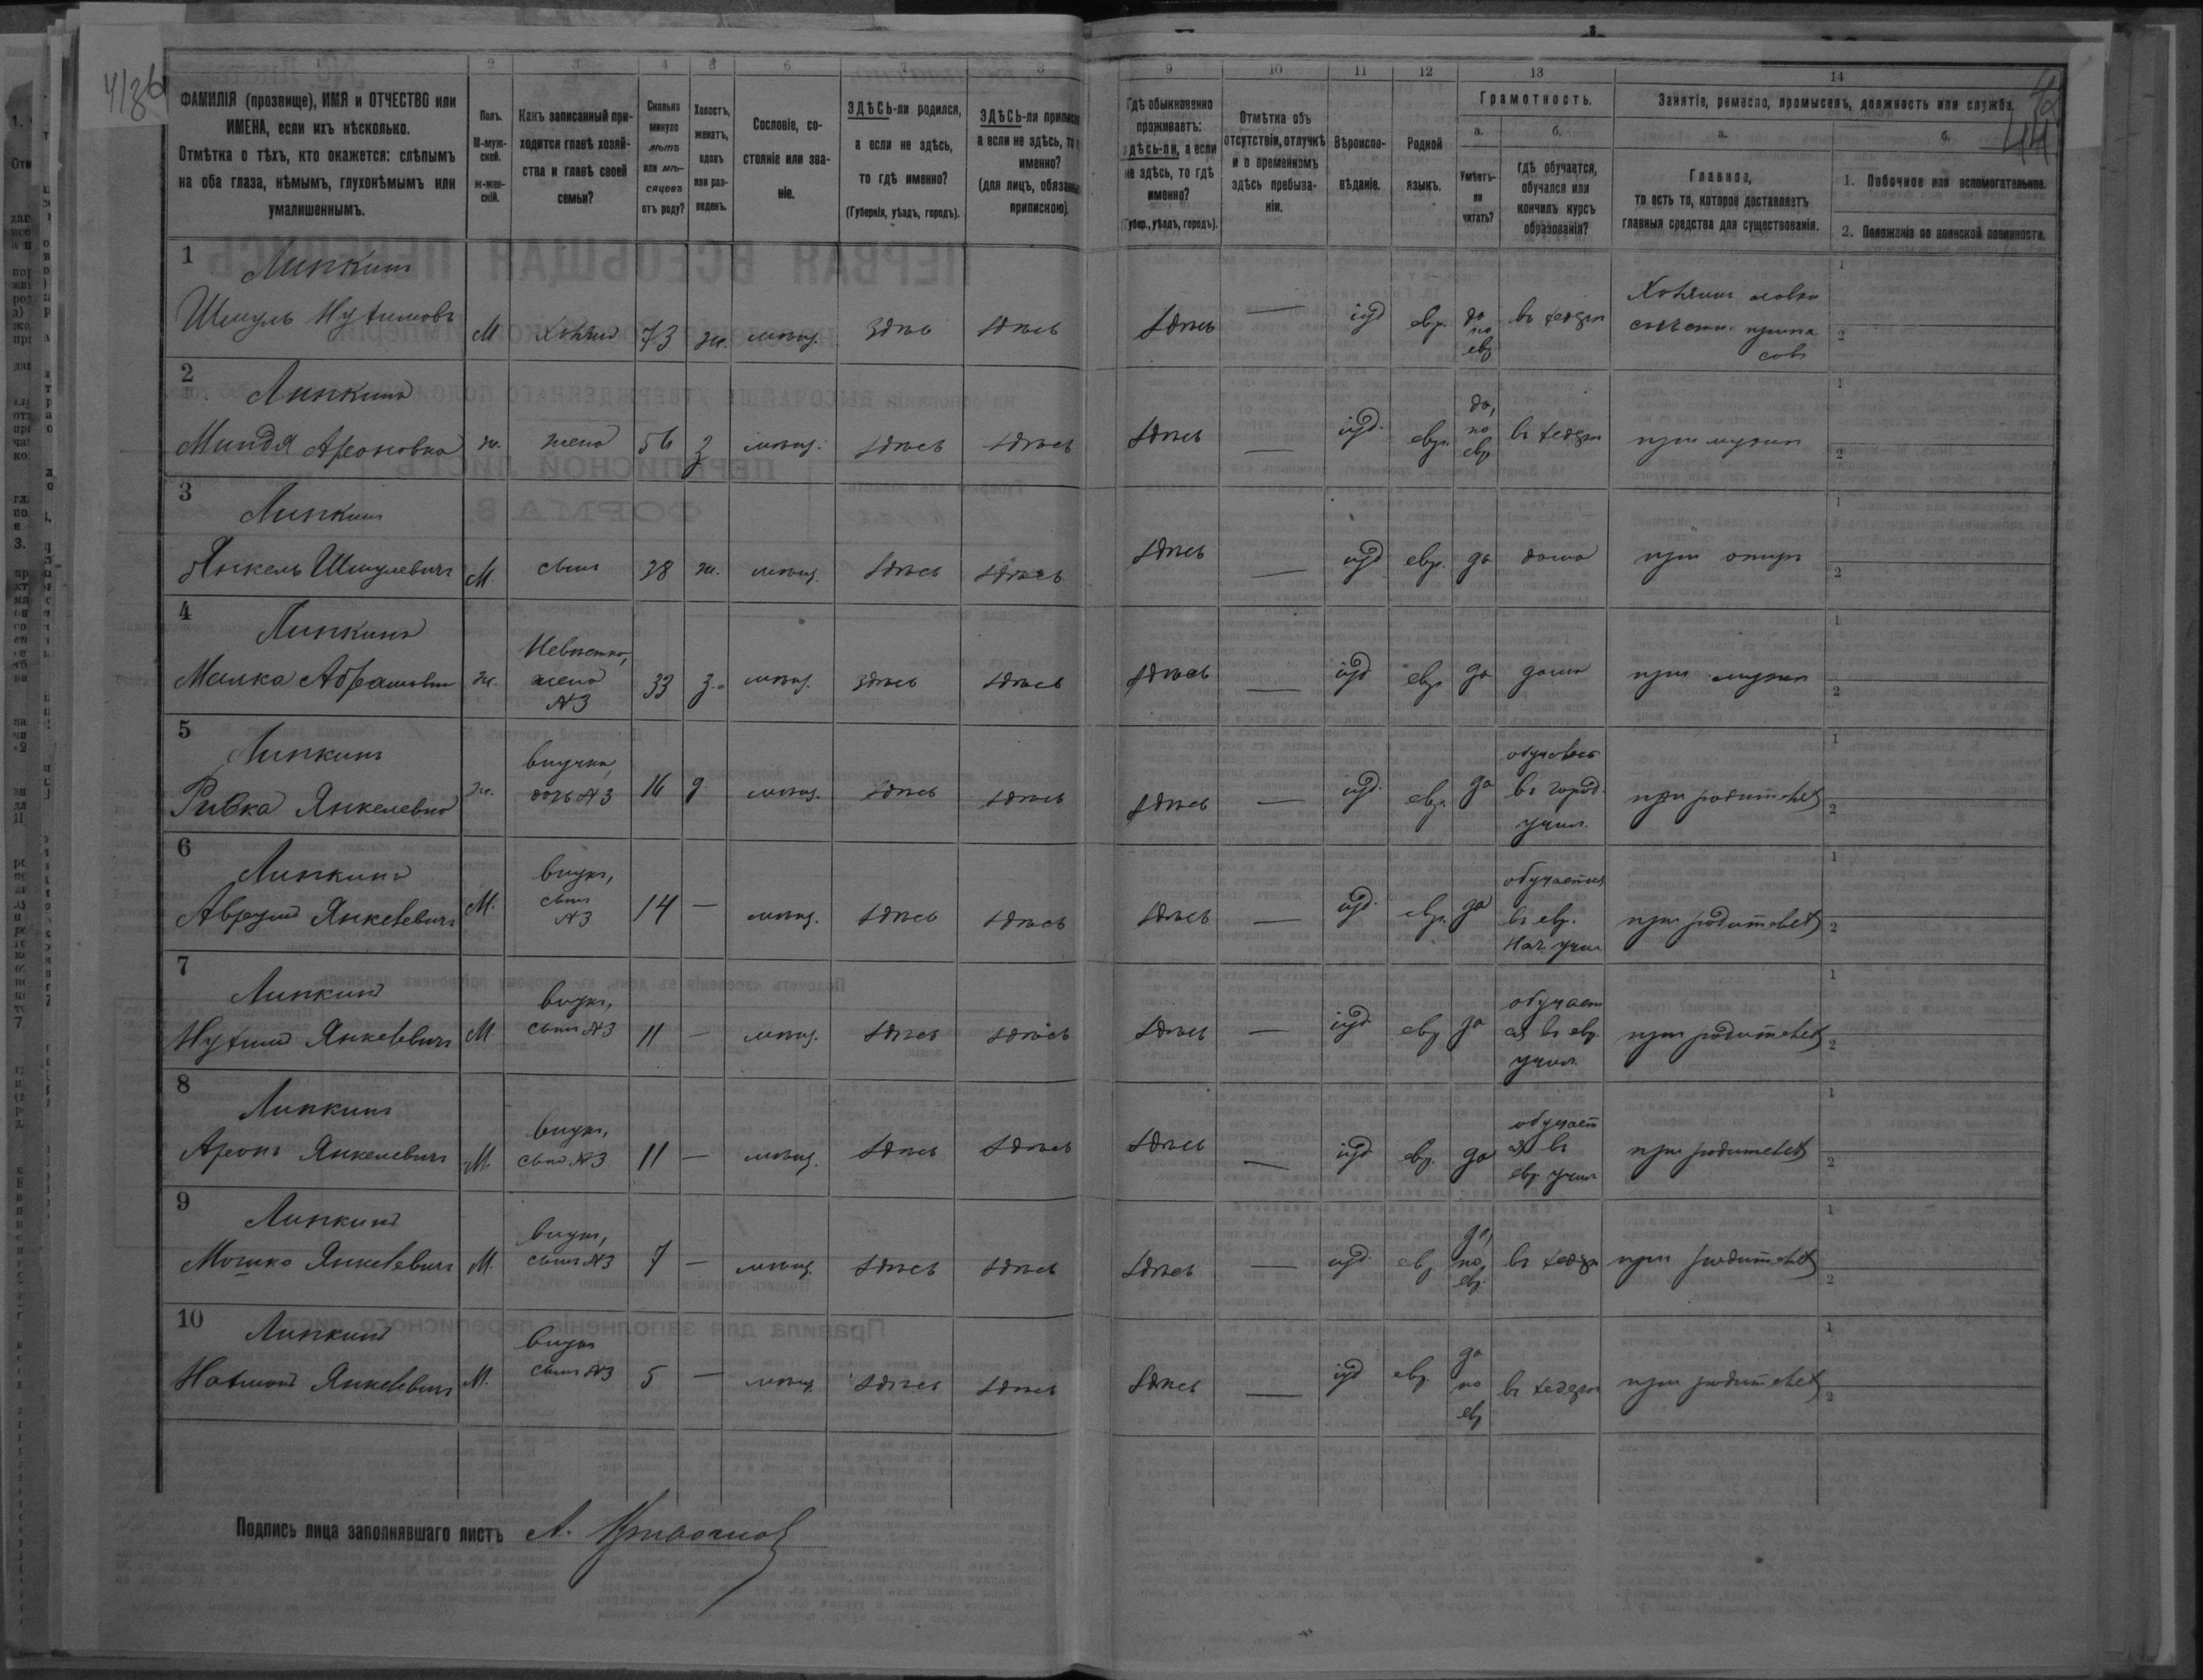 4/86
42
44
1 2 3 4 5 6 7 8 9 10 11 12 13 14
ФАМИЛІЯ (прозвище), ИМЯ и ОТЧЕСТВО или
ИМЕНА, если ихъ нѣсколько.
Отмѣтка о тѣхъ, кто окажется: слѣпымъ
на оба глаза, нѣмымъ, глухонѣмымъ или
умалишеннымъ.
Полъ.
М-муж-
ской.
ж-жен-
скій.
Какъ записанный при-
ходится главѣ хозяй-
ства и главѣ своей
семьи?
Сколько
минуло
лѣтъ
или мѣ-
сяцевъ
отъ роду?
Холостъ,
женатъ,
вдовъ
или раз-
веденъ.
Сословіе, со-
стояніе или зва-
ніе.
ЗДѢСЬ-ли родился,
а если не здѣсь,
то гдѣ именно?
(Губернія, уѣздъ, городъ).
ЗДѢСЬ-ли приписанъ
а если не здѣсь, то
именно?
(для лицъ, обязан
припискою).
Гдѣ обыкновенно
проживаетъ:
здѣсь-ли, а если
не здѣсь, то гдѣ
именно?
(Губер., уѣздъ, городъ).
Отмѣтка объ
отсутствіи, отлучкѣ
и о временномъ
здѣсь пребыва-
ніи.
Вѣроиспо-
вѣданіе.
Родной
языкъ.
Грамотность.
а.
Умѣетъ-
ли
читать?
б.
гдѣ обучается,
обучался или
кончилъ курсъ
образованія?
Занятіе, ремесло, промыселъ, должность или служба.
а.
Главное,
то есть то, которое доставляетъ
главныя средства для существованія.
б.
1. Побочное или вспомогательное.
2. Положеніе по воинской повинности.
1 Липкинъ
Шмуль Нухимовъ М хозяинъ 73 ж. мѣщ. здѣсь здѣсь здѣсь — іуд евр. да по евр въ хедерѣ Хозяинъ лавки съѣстн. припасовъ
2 Липкина
Миндя Ароновна ж. жена 56 з мѣщ. здѣсь здѣсь здѣсь — іуд. евр. да, по евр въ хедерѣ при мужѣ
3 Липкинъ
Янкель Шмулевичъ М. сынъ 38 ж. мѣщ. здѣсь здѣсь здѣсь — іуд евр. да дома при отцѣ
4 Липкина
Малка Абрамовна ж. Невѣстка, жена №3 33 з. мѣщ. здѣсь здѣсь здѣсь — іуд евр да дома при мужѣ
5 Липкина
Ривка Янкелевна ж. внучка, дочь №3 16 д мѣщ. здѣсь здѣсь здѣсь — іуд. евр. да обучалась въ город. учил. при родителяхъ
6 Липкинъ
Аврумъ Янкелевичъ М. внукъ, сынъ №3 14 — мѣщ. здѣсь здѣсь здѣсь — іуд. евр. да обучается въ евр. Нач. учил при родителяхъ
7 Липкинъ
Нухимъ Янкелевичъ М внукъ, сынъ №3 11 — мѣщ. здѣсь здѣсь здѣсь — іуд. евр да обучается въ евр. учил. при родителяхъ
8 Липкинъ
Аронъ Янкелевичъ М. внукъ, сынъ №3 11 — мѣщ. здѣсь здѣсь здѣсь — іуд евр. да обучается въ евр. учил при родителяхъ
9 Липкинъ
Мошко Янкелевичъ М. внукъ, сынъ №3 7 — мѣщ. здѣсь здѣсь здѣсь — іуд. евр да, по евр. въ хедерѣ при родителяхъ
10 Липкинъ
Нахманъ Янкелевичъ М. внукъ сынъ №3 5 — мѣщ здѣсь здѣсь здѣсь — іуд евр. да по евр въ хедерѣ при родителяхъ
Подпись лица заполнявшаго листъ А.